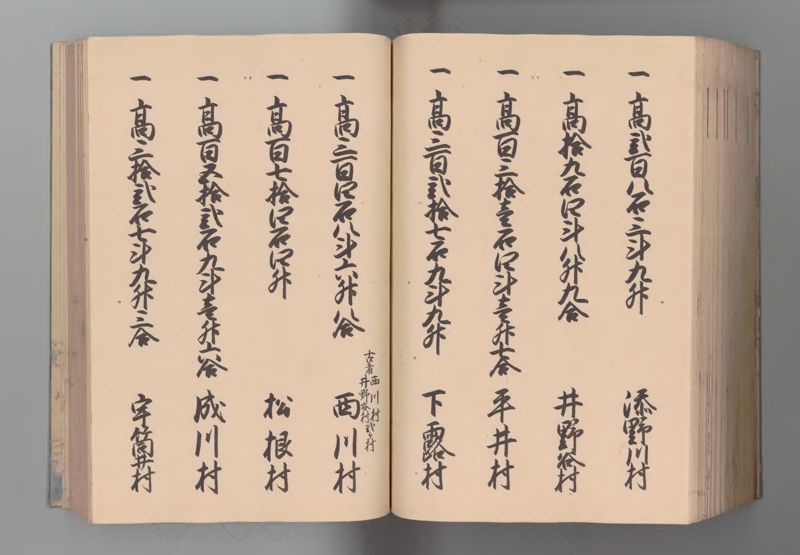 一 高弐百八石三斗九升 添野川村
一 高拾九石四斗八升九合 井野谷村
一 高百三拾壱石四斗壱升七合 平井村
一 高三百弐拾七石九斗九升 下露村
古者西川村井野谷村弐ヶ村
一 高三百四石八斗六升八合 西川村
一 高百七拾四石四升 松根村
一 高百五拾弐石九斗壱升六合 成川村
一 高三拾弐石七斗九升三合 宇筒井村